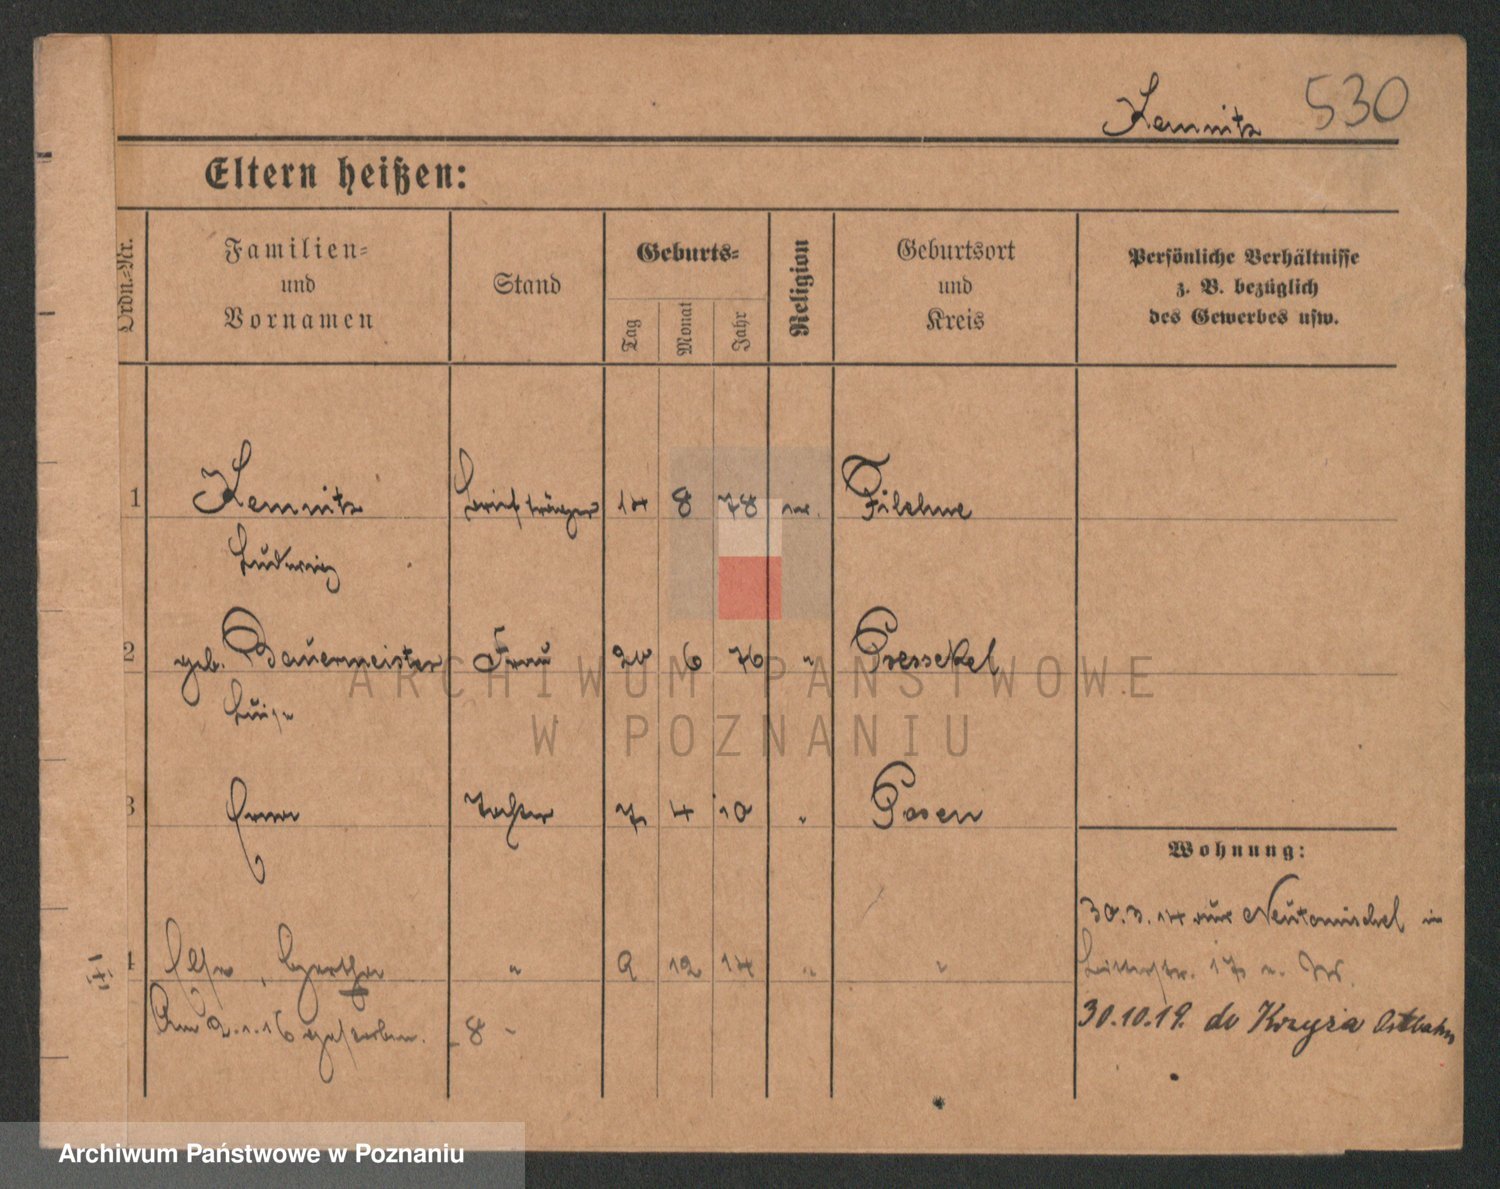 Kemnitz 530
Eltern heißen:
Ordn.=Nr.
Familien=
und
Vornamen
Stand
Geburts=
Tag
Monat
Jahr
Religion
Geburtsort
und
Kreis
Persönliche Verhältnisse
z. B. bezüglich
des Gewerbes usw.
1 Kemnitz Briefträger 14 8 78 ev. Filehne
Ludwig
2 geb. Bauermeister Frau 20 6 76 " Presseckel
Luise
3 Erna Tochter 7 4 10 " Posen
Wohnung:
30.3.14 aus Neutomischel in
4 Else, Hertha " 9 12 14 " "
17
Am 2.1.16 gestorben. 8
30.10.19. do Krzyża Ostbahn
ARCHIWUM PAŃSTWOWE
W POZNANIU
Archiwum Państwowe w Poznaniu